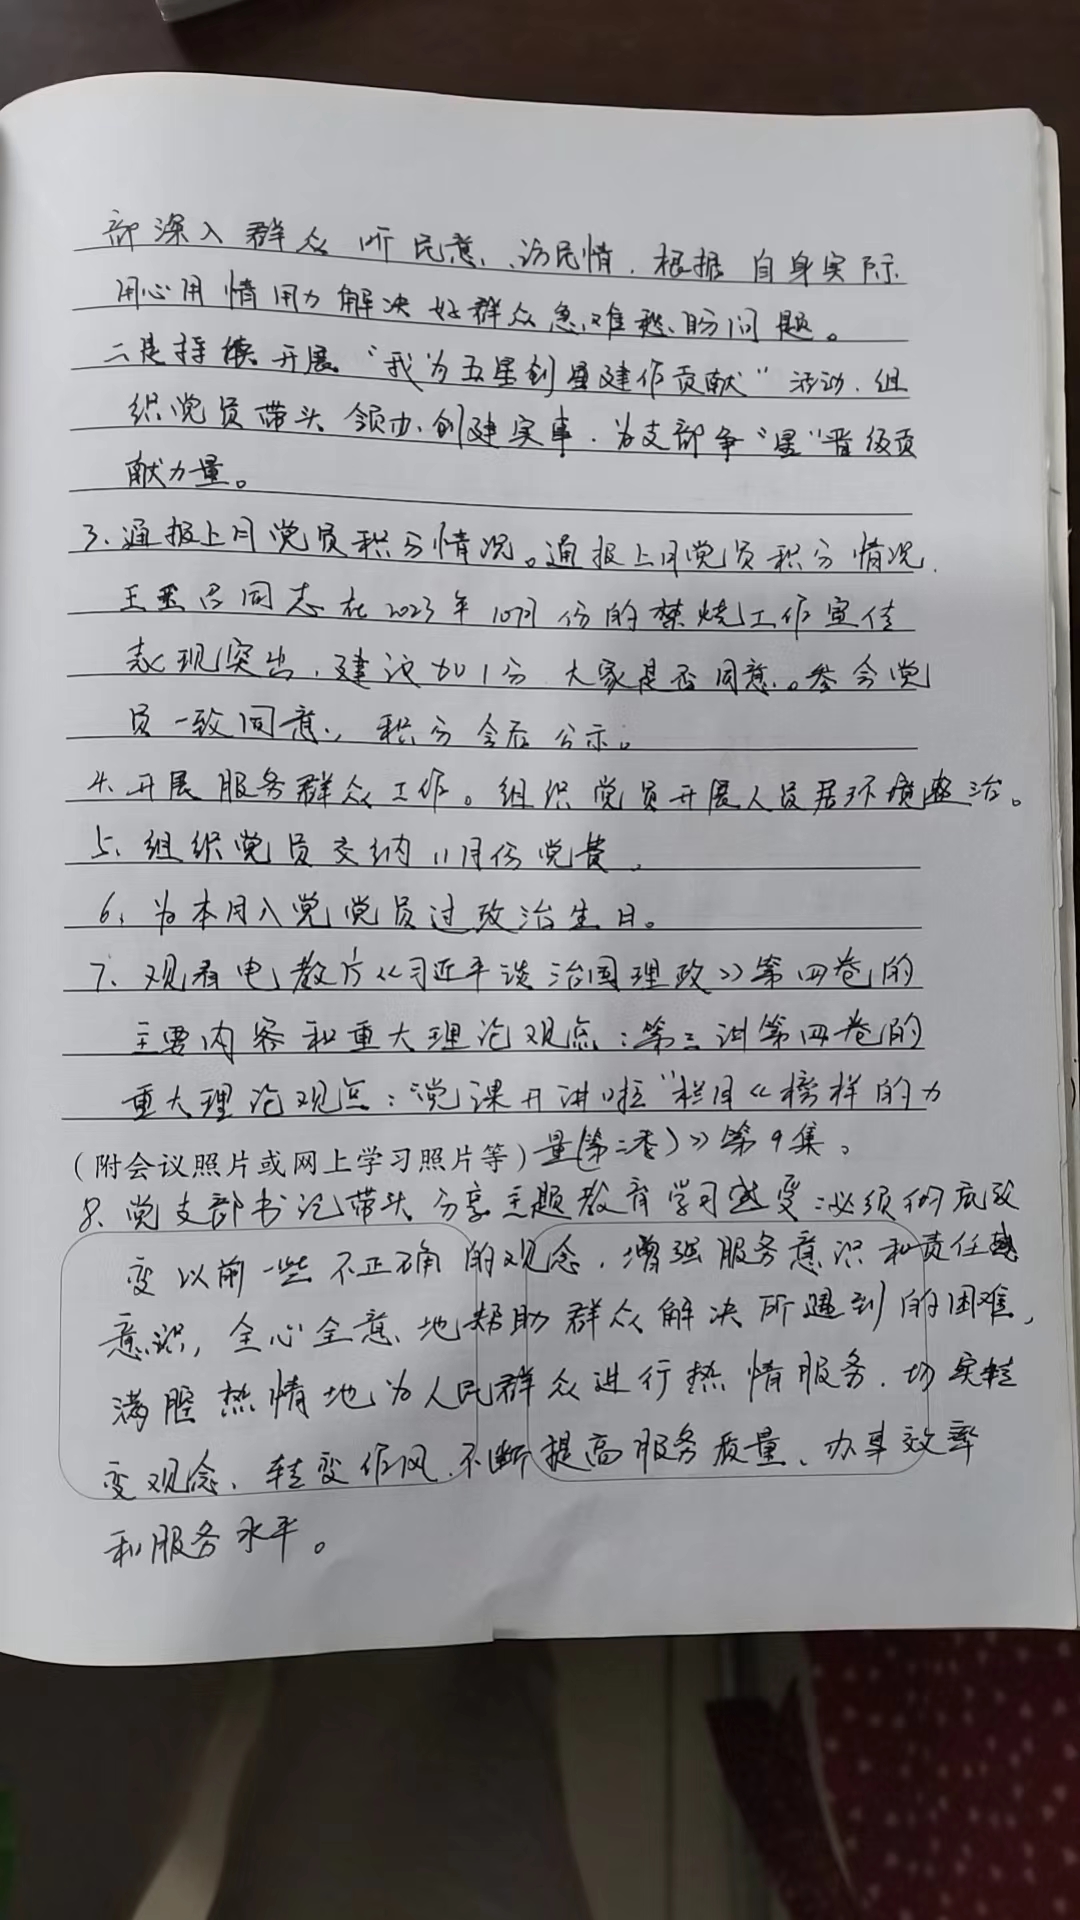 部深入群众听民意、访民情,根据自身实际
用心用情用力解决好群众急难愁盼问题。
二是持续开展“我为五星创星建作贡献”活动,组
织党员带头领办创建实事,为支部争“星”晋级贡
献力量。
3、通报上月党员积分情况。通报上月党员积分情况,
王 同志在2023年10月份的禁烧工作宣传
表现突出,建议加1分,大家是否同意。参会党
员一致同意,积分会后公示。
4、开展服务群众工作。组织党员开展人员居环境整治。
5、组织党员交纳11月份党费。
6、为本月入党党员过政治生日。
7、观看电教片《习近平谈治国理政》第四卷的
主要内容和重大理论观点:第三训第四卷的
重大理论观点:“党课开讲啦”栏目《榜样的力
(附会议照片或网上学习照片等)量(第二季)》第9集。
8、党支部书记带头分享主题教育学习感受:必须彻底改
变以前一些不正确的观念,增强服务意识和责任
意识,全心全意地帮助群众解决所遇到的困难,
满腔热情地为人民群众进行热情服务,切实转
变观念、转变作风,不断提高服务质量、办事效率
和服务水平。